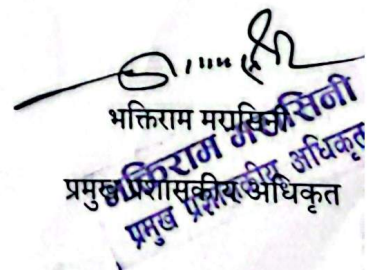 भक्तिराम मरासिनी
प्रमुख प्रशासकीय अधिकृत
भक्तिराम मरासिनी
प्रमुख प्रशासकीय अधिकृत